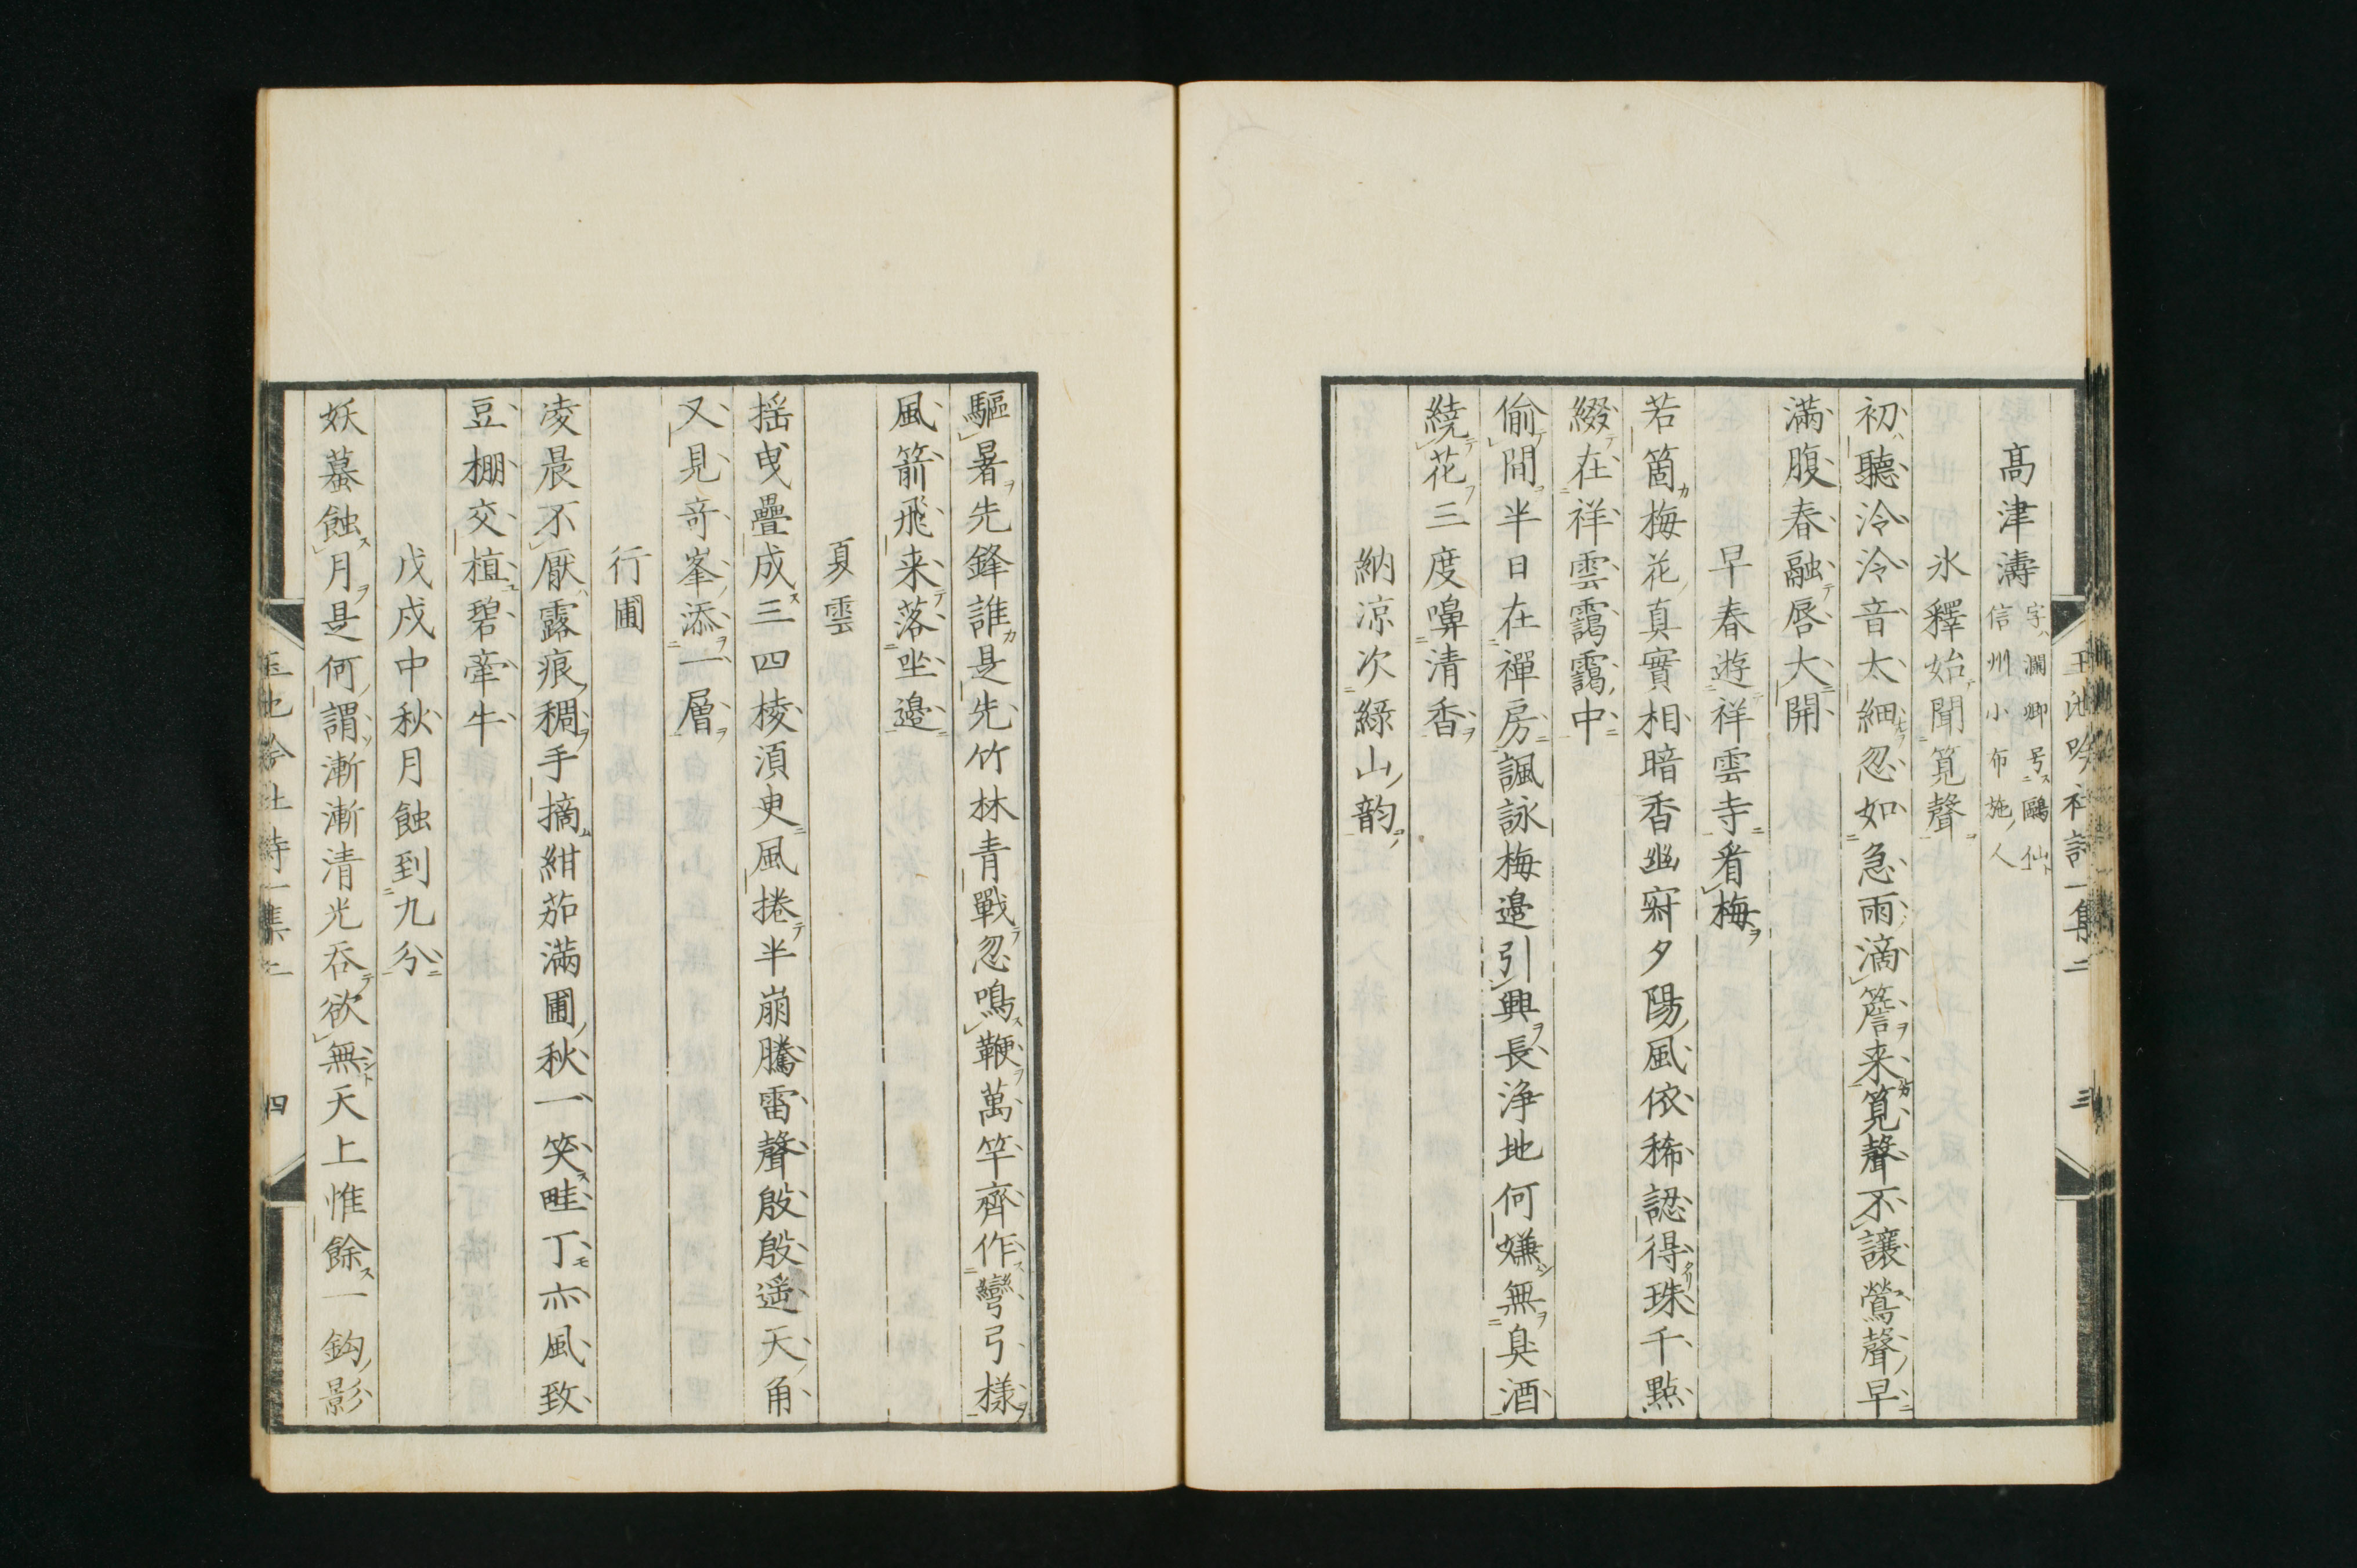 高津濤 字瀾卿号鷗仙
信州小布施人
氷釋始聞筧聲
初聽泠泠音太細忽如急雨滴簷来筧聲不讓鶯聲早
滿腹春融唇大開
早春遊祥雲寺看梅
若箇梅花真實相暗香幽寂夕陽風依稀認得珠千點
綴在祥雲靄靄中
偷間半日在禪房諷詠梅邉引興長浄地何嫌無臭酒
繞花三度嗅清香
納涼次綠山韵
玉池吟社詩一集二 三
驅暑先鋒誰是先竹林青戰忽鳴鞭萬竿齊作彎弓樣
風箭飛来落坐邉
夏雲
揺曳疊成三四棱須臾風捲半崩騰雷聲殷殷遥天角
又見奇峯添一層
行圃
凌晨不厭露痕稠手摘紺茄滿圃秋一笑畦丁亦風致
豆棚交植碧牽牛
戊戍中秋月蝕到九分
妖蟇蝕月是何謂漸漸清光呑欲無天上惟餘一鈎影
玉池吟社詩一集二 四